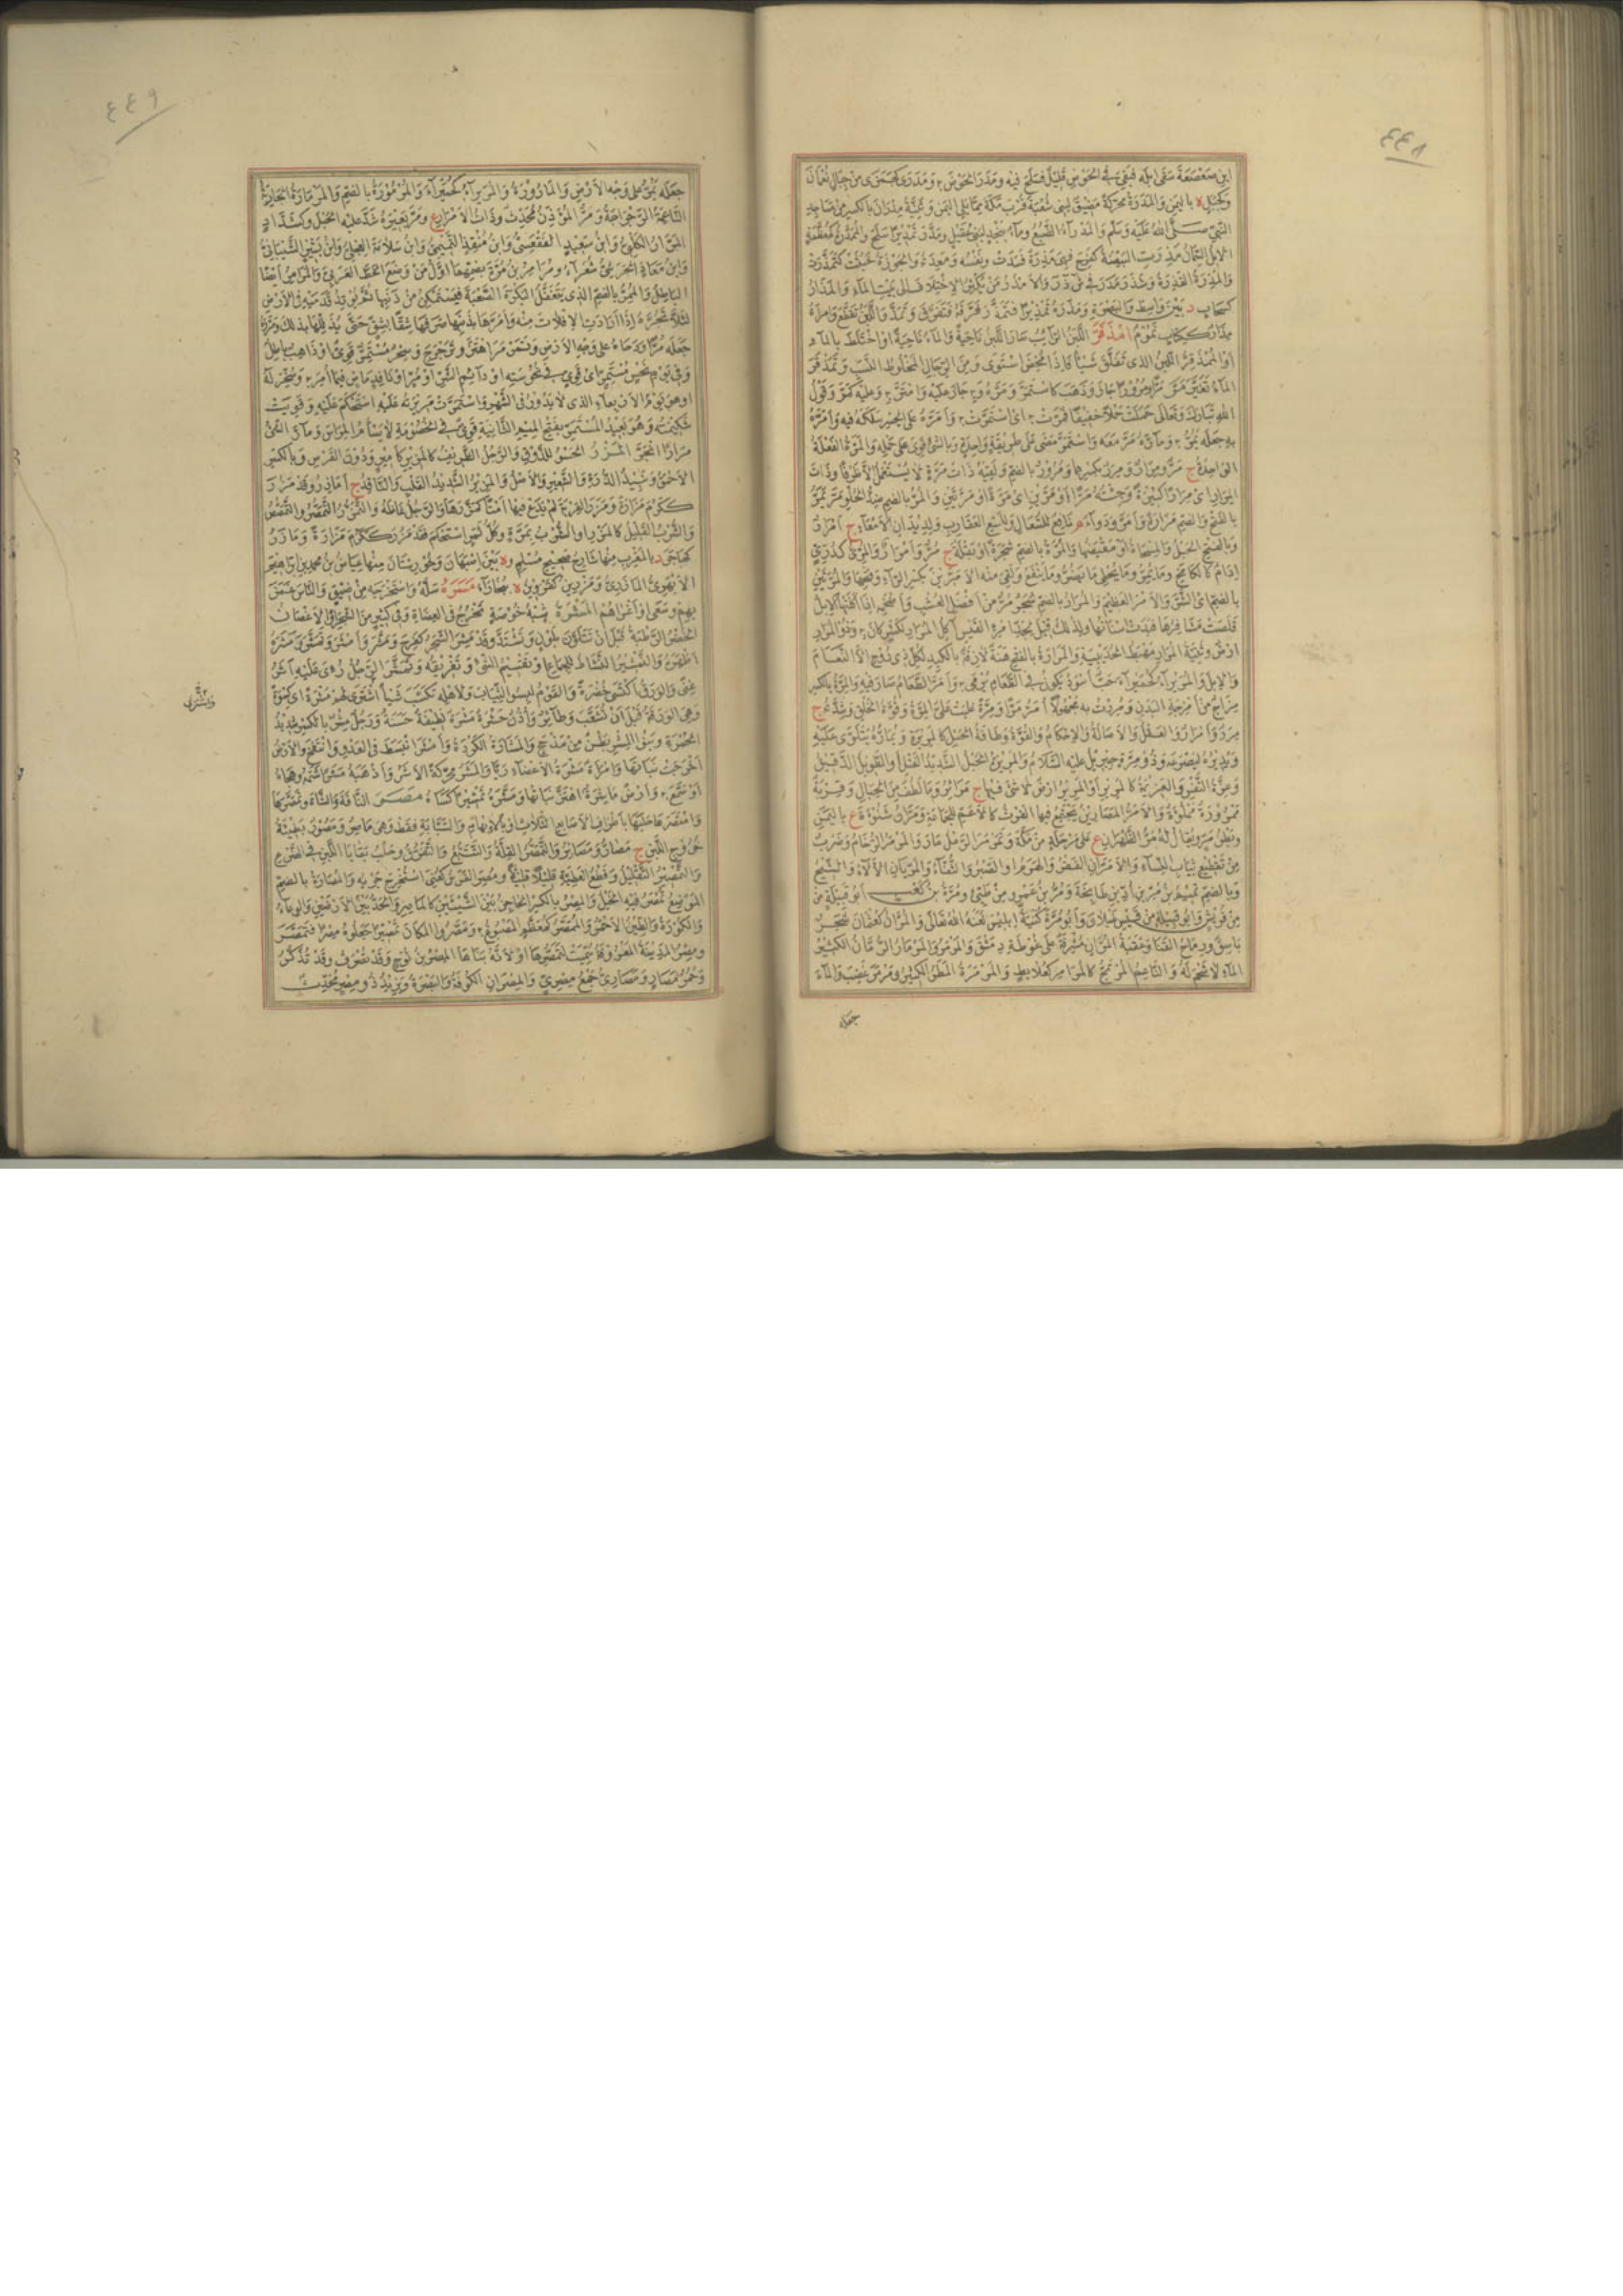 ٤٤٨
ابن صعصعة سقى ابله فبقى فى الحوض قليل فسلح فيه ومدر الحوض
بالیمن والمدرة محركة مضيق لبنى شعبة قرب مكة مما يلى اليمن وثنية مدران بالكسر من مساجد
النبى صلى الله عليه وسلم والمدراء الضبع وماء بنجد لبنى عقيل ومدر تمديرا سلح
مذرت البيضة كفرح فهى مذرة فسدت ونفسه ومعدته والجوزة خبثت كتمذرت
والمذرة القذرة
كسحاب د بين واسط والبصرة ومذره تمذيرا فتمذر فرقه فتفرق وتمذر اللبن تقطع وامرأة
امذقر اللبن الرائب صار اللبن ناحية والماء ناحية او اختلط بالماء
او الممذقر اللبن الذى تفلق شيأ فاذا مخض استوى ومن الرجال المخلوط النسب وتمذقر
الماء تغير مر مرا ومرورا جاز وذهب كاستمر ومره و به جاز عليه وامتر به وعليه كمر وقول
الله تبارك وتعالى حملت حملا خفيفا فمرت به اى استمرت به وامره على الجسر سلكه فيه وامره
به جعله يمر به وماره مر معه واستمر مضى على طريقة واحدة وبالشىء قوى على حمله والمرة الفعلة
الواحدة ج مر ومرار ومرر بكسرهما ومرور بالضم ولقيه ذات مرة لا يستعمل الا ظرفا وذات
المرار اى مرارا كثيرة وجئته مرا او مرين اى مرة او مرتين والمر بالضم ضد الحلو مر يمر
بالفتح والضم مرارة وامر ودواء م نافع للسعال ولسع العقارب ولديدان الامعاء ج امرار
وبالفتح الحبل والمسحاة او مقبضها والمرة بالضم شجرة او بقلة ج مر وامرار والمرى كدرى
ادام كالكامخ وما يمر وما يحلى ما يضر وما ينفع ولقى منه الامرين بكسر الراء وفتحها والمرتين
بالضم اى الشر والامر العظيم والمرار بالضم شجر مر من افضل العشب واضخمه اذا اكلتها الابل
قلصت مشافرها فبدت اسنانها ولذلك قيل لجد امرئ القيس آكل المرار لكشر كان به وذو المرار
ارض وثنية المرار مهبط الحديبية والمرارة بالفتح هنة لازقة بالكبد لكل ذى روح الا النعام
والابل والمريراء كحميراء حب اسود يكون فى الطعام يرمى به وامر الطعام صار فيه والمرة بالكسر
مزاج من امزجة البدن ومررت به مجهولا امر مرا ومرة غلبت على المرة وقوة الخلق وشدته ج
مرر وامرار والعقل والاصالة والاحكام والقوة وطاقة الحبل كالمريرة ويماره يتلوى عليه
ويديره ليصرعه وذو مرة جبريل عليه السلام والمرير الحبل الشديد الفتل والطويل الدقيق
وعزة النفس والعزيمة كالمرير او المرير ارض لا شىء فيها ج مرائر وما لطف من الحبال وقربة
ممرورة مملوءة والامر المصارين يجتمع فيها الفرث كالاعم للجماعة ومران شنوءة ع باليمن
وبطن مر ويقال له مر الظهران ع على مرحلة من مكة وتمرمر الرمل مار والمرمر الرخام وضرب
من تقطيع ثياب النساء والامران الفقر والهرم او الصبر والثفاء والمريان الالاء والشيح
وبالضم تميم بن مر بن اد بن طابخة ومر بن عمرو من طيئ ومرة بن كعب ابو قبيلة من
من قريش وابو قبيلة من قيس عيلان وابو مرة كنية ابليس لعنه الله تعالى والمران كعثمان شجر
باسق ورماح القنا وعقبة المران مشرفة على غوطة دمشق والمرمر والمرمار الرمان الكثير
الماء لا شحم له والناعم المرتج كالمرامر كعلابط والمرمرة المطر الكثير ومرمر غضب والماء
جعله
٤٤٩
جعله يمر على وجه الارض والمارورة والمريراء كحميراء والمرمورة بالضم والمرمارة الجارية
الناعمة الرجراجة ومر المؤذن محدث وذات الامرار ع ومر بعيره شد عليه الحبل وكشداد
المرار الكلبى وابن سعيد الفقعسى وابن منقذ التميمى وابن سلامة العجلى وابن بشير الشيبانى
وابن معاذ الحرشى شعراء ومرامر بن مرة بضمهما اول من وضع الخط العربى والمرامر ايضا
الباطل والممر بالضم الذى يتغفل البكرة الصعبة فيستمكن من ذنبها ثم يوتد قدميه فى الارض
لئلا تجره اذا ارادت الافلات منه وامرها بذنبها صرفها شقا بشق حتى يذللها بذلك ومرره
جعله مرا ودحاه على وجه الارض وتمرمر اهتز وترجرج وسحر مستمر قوى او ذاهب باطل
وفى يوم نحس مستمر اى قوى فى نحوسته او دائم الشر او مر او نافذ ماض فيما امر به وسخر له
او هو يوم الاربعاء الذى لا يدور فى الشهر واستمرت مريرته عليه استحكم عليه وقويت
شكيمته وهو بعيد المستمر بفتح الميم الثانية قوى فى الخصومة لا يسأم المراس ومار الشىء
مرارا انجر المزر الحسو للذوق والرجل الظريف كالمزير كامير ودون القرص وبالكسر
الاحمق ونبيذ الذرة والشعير والاصل والمزير الشديد القلب النافذ ج امازر وقد مزر
ككرم مزارة ومزر القربة لم يدع فيها امتا كمزرها والرجل غاظه والتمزر التمصر والتمصص
والشرب القليل كالمزر او الشرب بمرة وكل ثمر استحكم فقد مزر ككرم مزارة ومازر
كهاجر د بالمغرب منها شارح صحيح مسلم و ة بين اصبهان وخوزستان منها عياش بن محمد بن ابراهيم
الابهرى المازرى ومزرين كقزوين ة ببخاراء مسره سله واستخرجه من ضيق والناس غمز
بهم وسعى او اغراهم المشرة شبه خوصة تخرج فى العضاه وفى كثير من الشجر او الاغصان
الخضر الرطبة قبل ان تتلون بلون وتشتد وقد مشر الشجر كفرح ومشر وامشر وتمشر ومشره
اظهره والتمشير النشاط للجماع وتقسيم الشىء وتفريقه وتمشر الرجل رؤى عليه اثر
غنى والورق اكتسى خضرة والقوم لبسوا الثياب ولاهله تكسب شيأ اشترى لهم مشرة اى كسوة
وهى الورقة قبل ان تشعب وطائر واذن حشرة مشرة لطيفة حسنة ورجل مشر بالكسر شديد
الحمرة وبنو المشر بطن من مذحج والمشارة الكردة وامشر انبسط فى العدو وانتفخ والارض
اخرجت نباتها وامرأة مشرة الاعضاء ريا والمشر محركة الاشر واذهبه مشرا شتمه وهجاه
او سمع به وارض ماشرة اهتز نباتها ومشره تمشيرا كساه مصر الناقة والشاة وتمصرها
وامتصرها حلبها باطراف الاصابع الثلاث او بالابهام والسبابة فقط وهى ماصر ومصور بطيئة
خروج اللبن ج مصار ومصائر والتمصر القلة والتتبع والتفرق وحلب بقايا اللبن فى الضرع
والتمصير التقليل وقطع العطية قليلا قليلا ومصر الفرس كعنى استخرج جريه والمصارة بالضم
الموضع تمصر فيه الخيل والمصر بالكسر الحاجز بين الشيئين كالماصر والحد بين الارضين والوعاء
والكورة والطين الاحمر والممصر كمعظم المصبوغ به ومصروا المكان تمصيرا جعلوه مصرا فتمصر
ومصر المدينة المعروفة سميت لتمصرها او لانه بناها المصر بن نوح وقد تصرف وقد تذكر
وحمر مصار ومصارى جمع مصرى والمصران الكوفة والبصرة ويزيد ذو مصر محدث